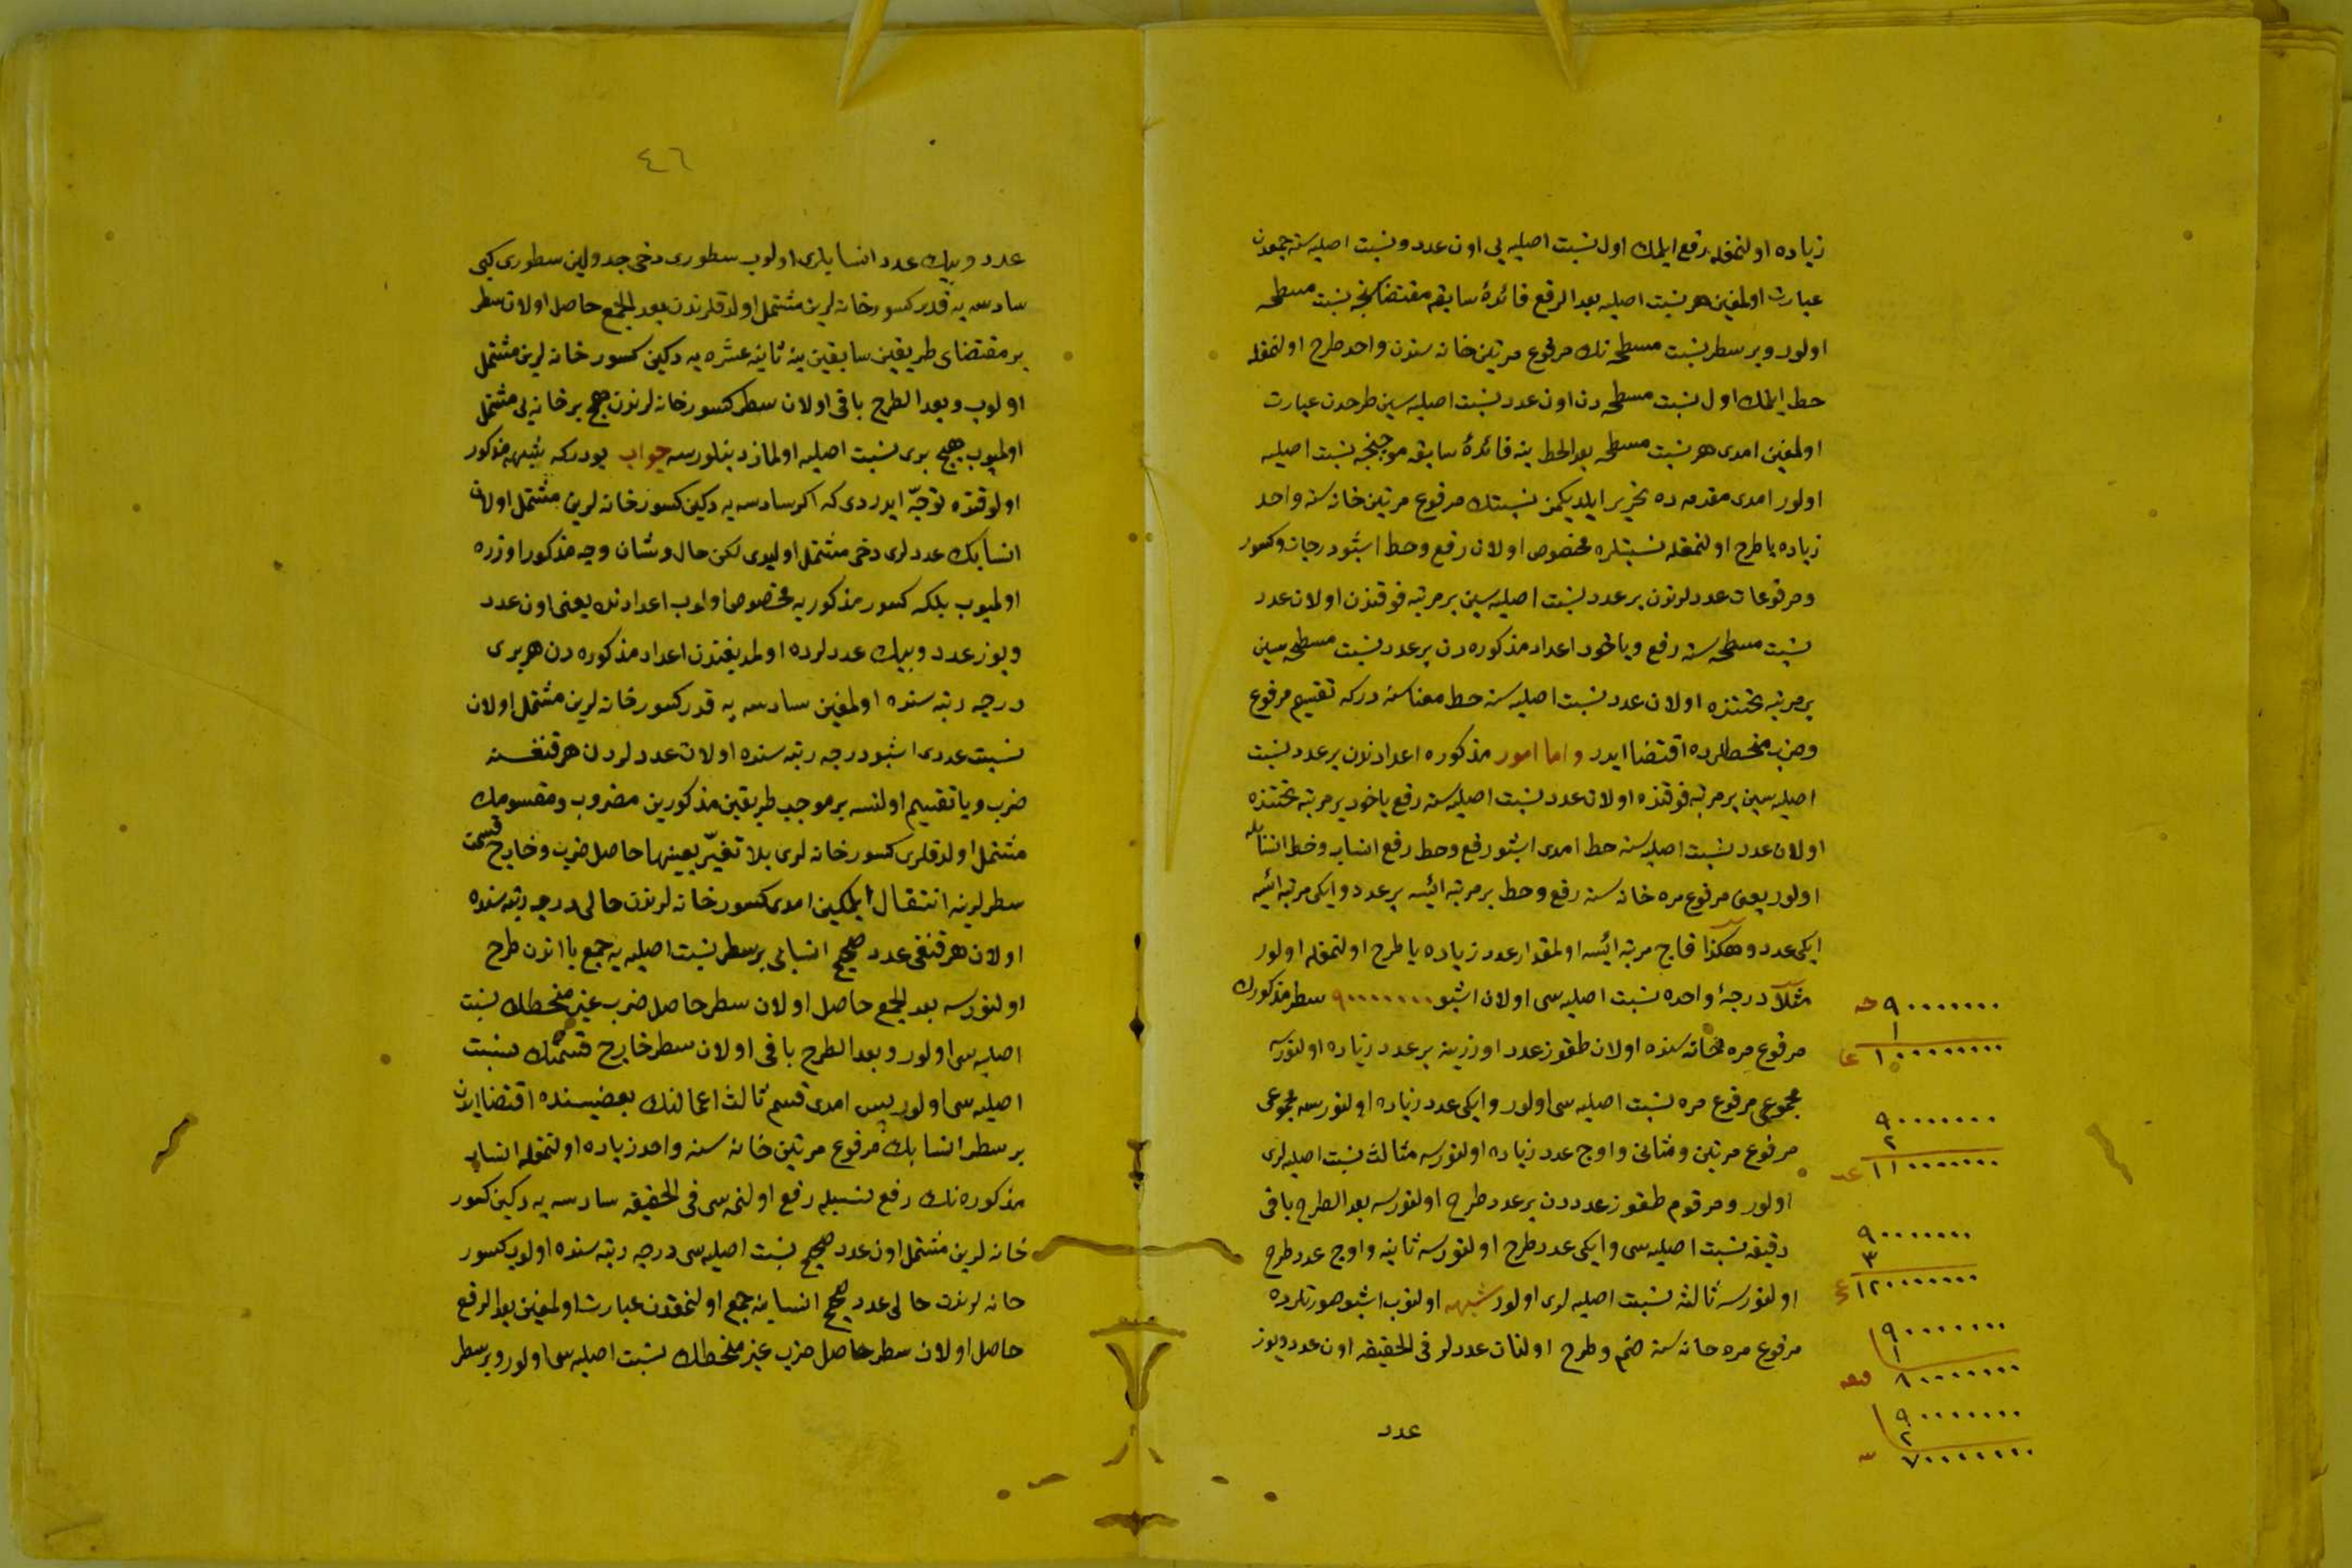 زياده اولنمغله رفع ايلمك اول نسبت اصليه يى اون عدد و نسبت اصليه سنه جمعدن
عبارت اولمغين هر نسبت اصليه بعد الرفع فائدۀ سابقه مقتضاسنجه نسبت مسطحه
اولور و بر سطر نسبت مسطحه نك مرفوع مرتين خانه سندن واحد طرح اولنمغله
حط ايلمك اول نسبت مسطحه دن اون عدد نسبت اصليه سين طرحدن عبارت
اولمغين امدى هر نسبت مسطحه بعد الحط ينه فائدۀ سابقه موجبنجه نسبت اصليه
اولور امدى مقدمه ده تحرير ايلديكمز نسبتك مرفوع مرتين خانه سنه واحد
زياده يا طرح اولنمغله نسبتلره مخصوص اولان رفع و حط اشبو درجات و كسور
و مرفوعات عددلرندن بر عدد نسبت اصليه سين بر مرتبه فوقنده اولان عدد
نسبت مسطحه سنه رفع و ياخود اعداد مذكوره دن بر عدد نسبت مسطحه سين
بر مرتبه تحتنده اولان عدد نسبت اصليه سنه حط معناسنه دركه تقسيم مرفوع
و ضرب منحطلرده اقتضا ايدر و اما امور مذكوره اعدادندن بر عدد نسبت
اصليه سين بر مرتبه فوقنده اولان عدد نسبت اصليه سنه رفع ياخود بر مرتبه تحتنده
اولان عدد نسبت اصليه سنه حط امدى اشبو رفع و حط رفع انساب و حط انسابله
اولور يعنى مرفوع مره خانه سنه رفع و حط بر مرتبه ائيسه بر عدد و ايكى مرتبه ائيسه
ايكى عدد و هكذا قاچ مرتبه ائيسه اولمقدار عدد زياده يا طرح اولنمغله اولور
مثلا درجۀ واحده نسبت اصليه سى اولان اشبو ٩٠٠٠٠٠٠٠ سطر مذكورك
مرفوع مره خانه سنده اولان طقوز عدد اوزرينه بر عدد زياده اولنورسه
مجموعى مرفوع مره نسبت اصليه سى اولور و ايكى عدد زياده اولنورسه مجموعى
مرفوع مرتين و مثانى و اوچ عدد زياده اولنورسه مثالث نسبت اصليه لرى
اولور و مرقوم طقوز عدددن بر عدد طرح اولنورسه بعد الطرح باقى
دقيقه نسبت اصليه سى و ايكى عدد طرح اولنورسه ثانيه و اوچ عدد طرح
اولنورسه ثالثه نسبت اصليه لرى اولور شبهه اولنوب اشبو صورتلرده
مرفوع مره خانه سنه ضم و طرح اولنان عددلر فى الحقيقه اون عدد و يوز
عدد
٩٠٠٠٠٠٠٠
١
١٠٠٠٠٠٠٠٠
٩٠٠٠٠٠٠٠
٢
١١٠٠٠٠٠٠٠
٩٠٠٠٠٠٠٠
٣
١٢٠٠٠٠٠٠٠
٩٠٠٠٠٠٠٠
١
٨٠٠٠٠٠٠٠
٩٠٠٠٠٠٠٠
٢
٧٠٠٠٠٠٠٠
٤٦
عدد و بيك عدد انسابلرى اولوب سطورى دخى جدولين سطورى كبى
سادسه يه قدر كسور خانه لرين مشتمل اولدقلرندن بعد الجمع حاصل اولان سطر
بر مقتضاى طريقين سابقين ينه ثانيه عشره يه دكين كسور خانه لرين مشتمل
اولوب و بعد الطرح باقى اولان سطر كسور خانه لرندن هيچ بر خانه يى مشتمل
اولميوب هيچ برى نسبت اصليه اولماز دينلورسه جواب بودركه شبهه مذكور
اولوقتده توجّه ايدردى كه اكر سادسه يه دكين كسور خانه لرين مشتمل اولان
انسابك عددلرى دخى مشتمل اوليدى لكن حال و شان وجه مذكور اوزره
اولميوب بلكه كسور مذكوريه مخصوص اولوب اعدادنك يعنى اون عدد
و يوز عدد و بيك عددلرده اولمديغندن اعداد مذكوره دن هر برى
درجه رتبه سنده اولمغين سادسه يه قدر كسور خانه لرين مشتمل اولان
نسبت عددى اشبو درجه رتبه سنده اولان عددلردن هر قنغسنه
ضرب و يا تقسيم اولنسه بر موجب طريقين مذكورين مضروب و مقسومك
مشتمل اولدقلرى كسور خانه لرى بلا تغيّر بعينها حاصل ضرب و خارج قسمت
سطرلرينه انتقال ايلمكين امدى كسور خانه لرندن خالى درجه رتبه سنده
اولان هر قنغى عدد صحيح انسابى بر سطر نسبت اصليه يه جمع يا اندن طرح
اولنورسه بعد الجمع حاصل اولان سطر حاصل ضرب غير منحطك نسبت
اصليه سى اولور و بعد الطرح باقى اولان سطر خارج قسمتك نسبت
اصليه سى اولور پس امدى قسم ثالث اعمالنك بعضيسنده اقتضا ايدن
بر سطر انسابك مرفوع مرتين خانه سنه واحد زياده اولنمغله انساب
مذكوره نك رفع نسبله رفع اولنمه سى فى الحقيقه سادسه يه دكين كسور
خانه لرين مشتمل اون عدد صحيح نسبت اصليه سى درجه رتبه سنده اولوب كسور
خانه لرندن خالى عدد صحيح انسابنه جمع اولنمقدن عبارت اولمغين بعد الرفع
حاصل اولان سطر حاصل ضرب غير منحطك نسبت اصليه سى اولور و بر سطر